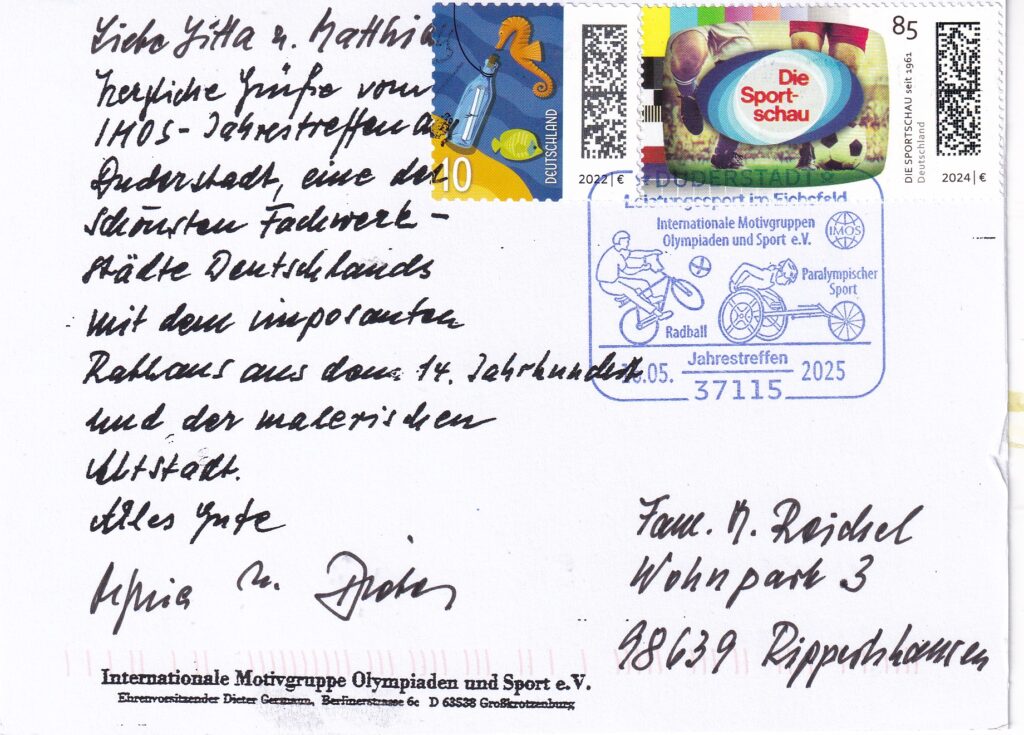 Liebe Gitta u. Matthias
Herzliche Grüße vom
IMOS-Jahrestreffen
Duderstadt, eine der
schönsten Fachwerk-
städte Deutschlands
mit dem imposanten
Rathaus aus dem 14. Jahrhundert
und der malerischen
Altstadt.
Alles Gute
u. Dieter
10
DEUTSCHLAND
2022 | €
Die
Sport-
schau
85
DIE SPORTSCHAU seit 1961
Deutschland
2024 | €
DUDERSTADT
Leistungssport im Eichsfeld
Internationale Motivgruppen
Olympiaden und Sport e.V.
IMOS
Paralympischer
Sport
Radball
Jahrestreffen
.05. 2025
37115
Fam. M. Reichel
Wohnpark 3
98639 Rippershausen
Internationale Motivgruppe Olympiaden und Sport e.V.
Ehrenvorsitzender Dieter Germann, Berlinerstrasse 6c D 63538 Großkrotzenburg